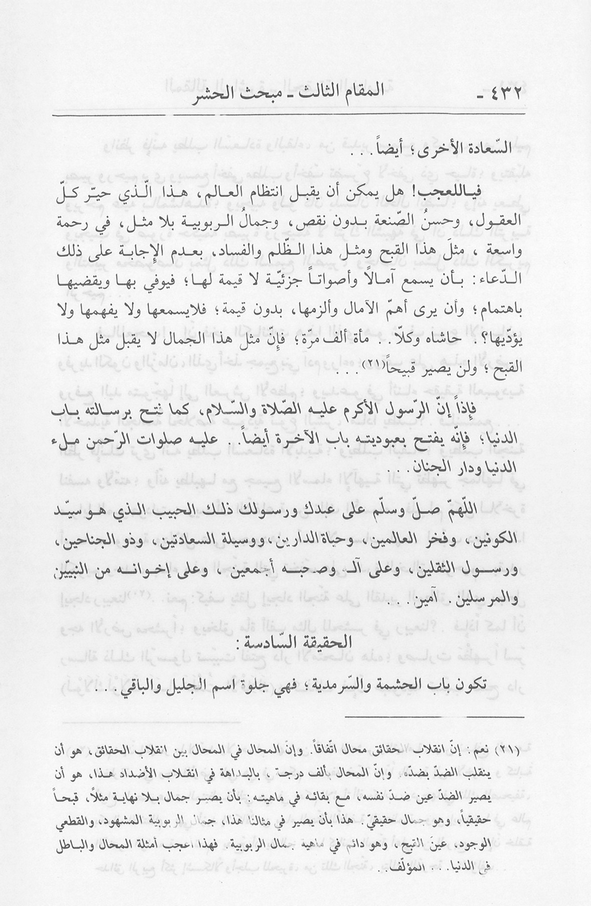 ٤٣٢ - المقام الثالث - مبحث الحشر
السّعادة الأخرى؛ أيضاً...
فياللعجب! هل يمكن أن يقبل انتظام العالم، هـذا الّـذي حيّـر كـلّ
العقول، وحسنُ الصّنعة بـدون نقص، وجمالُ الـربوبيـة بلا مثـل، في رحمة
واسعة، مثلَ هذا القبح ومثـل هـذا الظّلم والفساد، بعـدم الإجابة على ذلك
الدّعاء: بـأن يسمع آمـالاً وأصواتـاً جزئيّـة لا قيمة لهـا؛ فيوفي بهـا ويقضيهـا
باهتمام؛ وأن يرى أهمّ الآمال وألزمها، بدون قيمة؛ فلايسمعها ولا يفهمها ولا
يؤدّيها؟. حاشاه وكلّا.. مأة ألف مرّة؛ فإنّ مثل هذا الجمال لا يقبل مثل هـذا
القبح؛ ولن يصير قبيحاً(٢١)...
فإذاً إنّ الرّسول الأكرم عليـه الصّلاة والسّـلام، كما فتـح برسـالته بـاب
الدنيا؛ فإنّه يفتـح بعبوديتـه باب الآخـرة أيضاً.. عليـه صلوات الرّحمن مـلء
الدنيا ودار الجنان...
اللّهمّ صـلّ وسلّم على عبدك ورسولك ذلـك الحبيب الـذي هـو سيّـد
الكونين، وفخر العالمين، وحياة الدارين، ووسيلة السعادتين، وذو الجناحين،
ورسـول الثقلين، وعلى آلـه وصحبـه أجمعين، وعلى إخـوانـه من النبيّين
والمرسلين. آمين...
الحقيقة السّادسة:
تكون باب الحشمة والسّرمدية؛ فهي جلوة اسم الجليل والباقي...
(٢١) نعم: إنّ انقلاب الحقائق محال اتّفاقاً. وإنّ المحال في المحال بين انقلاب الحقائق، هو أن
ينقلب الضدّ بضدّه. وانّ المحال بألف درجة، بالبداهة في انقـلاب الأضداد هـذا، هو أن
يصير الضدّ عين ضدّ نفسه، مـع بقائـه في ماهيتـه: بأن يصيـر جمال بـلا نهايـة مثلًا، قبحـاً
حقيقياً، وهو جمال حقيقيّ. هذا بأن يصير في مثالنا هذا، جمال الربوبية المشهود، والقطعي
الوجود، عينَ القبح، وهو دائم في ماهية جمال الربوبية. فهذا اعجب أمثلة المحال والباطل
في الدنيا... المؤلّف..